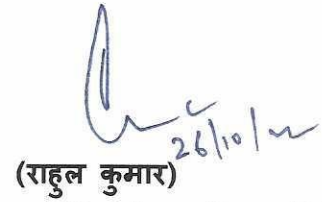 26/10/22
(राहुल कुमार)